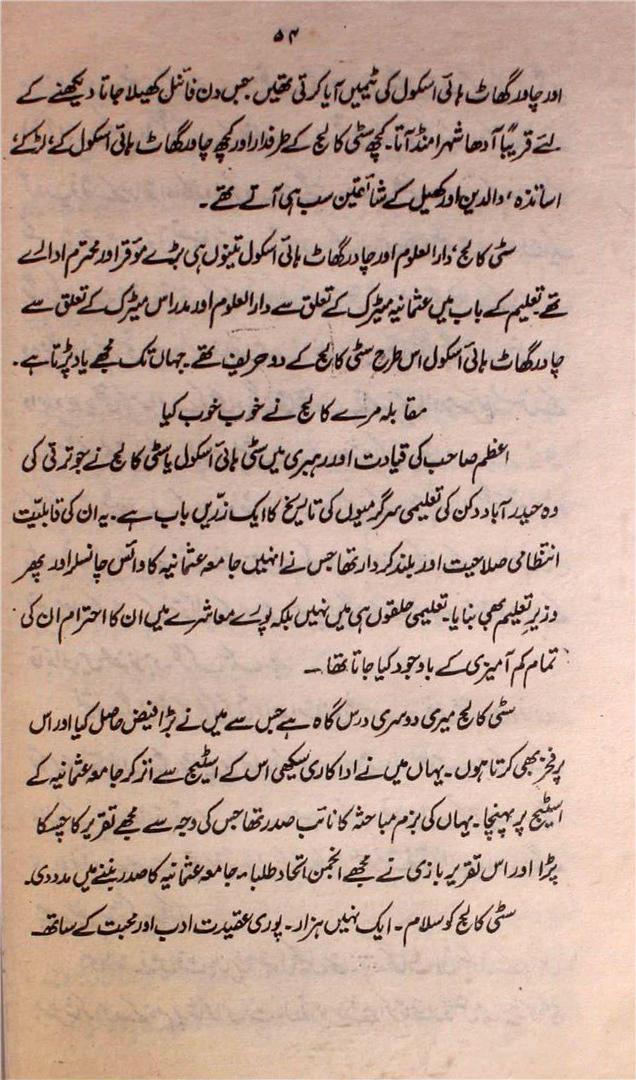 ۵۴
اور چادر گھاٹ ہائی اسکول کی ٹیمیں آیا کرتی تھیں جس دن فائنل کھیلا جاتا دیکھنے کے
لئے قریباً آدھا شہر امنڈ آتا۔ کچھ سٹی کالج کے طرفدار اور کچھ چادر گھاٹ ہائی اسکول کے، لڑکے،
اساتذہ، والدین اور کھیل کے شائقین سب ہی آتے تھے۔
سٹی کالج، دارالعلوم اور چادر گھاٹ ہائی اسکول تینوں ہی بڑے موقر اور محترم ادارے
تھے تعلیم کے باب میں عثمانیہ میٹرک کے تعلق سے دارالعلوم اور مدراس میٹرک کے تعلق سے
چادر گھاٹ ہائی اسکول اس طرح سٹی کالج کے دو حریف تھے۔ جہاں تک مجھے یاد پڑتا ہے۔
مقابلہ مرے کالج نے خوب خوب کیا
اعظم صاحب کی قیادت اور رہبری میں سٹی ہائی اسکول یا سٹی کالج نے جو ترقی کی
وہ حیدرآباد دکن کی تعلیمی سرگرمیوں کی تاریخ کا ایک زرّیں باب ہے۔ یہ ان کی قابلیّت
انتظامی صلاحیت اور بلند کردار تھا جس نے انہیں جامعہ عثمانیہ کا وائس چانسلر اور پھر
وزیرِ تعلیم بھی بنایا۔ تعلیمی حلقوں ہی میں نہیں بلکہ پورے معاشرے میں ان کا احترام ان کی
تمام کم آمیزی کے باوجود کیا جاتا تھا۔
سٹی کالج میری دوسری درس گاہ ہے جس سے میں نے بڑا فیض حاصل کیا اور اس
پر فخر بھی کرتا ہوں۔ یہاں میں نے اداکاری سیکھی اس کے اسٹیج سے اتر کر جامعہ عثمانیہ کے
اسٹیج پر پہنچا۔ یہاں کی بزم مباحثہ کا نائب صدر تھا جس کی وجہ سے مجھے تقریر کا چسکا
پڑا اور اس تقریر بازی نے مجھے انجمن اتحاد طلباء جامعہ عثمانیہ کا صدر بننے میں مدد دی۔
سٹی کالج کو سلام۔ ایک نہیں ہزار۔ پوری عقیدت ادب اور محبت کے ساتھ۔